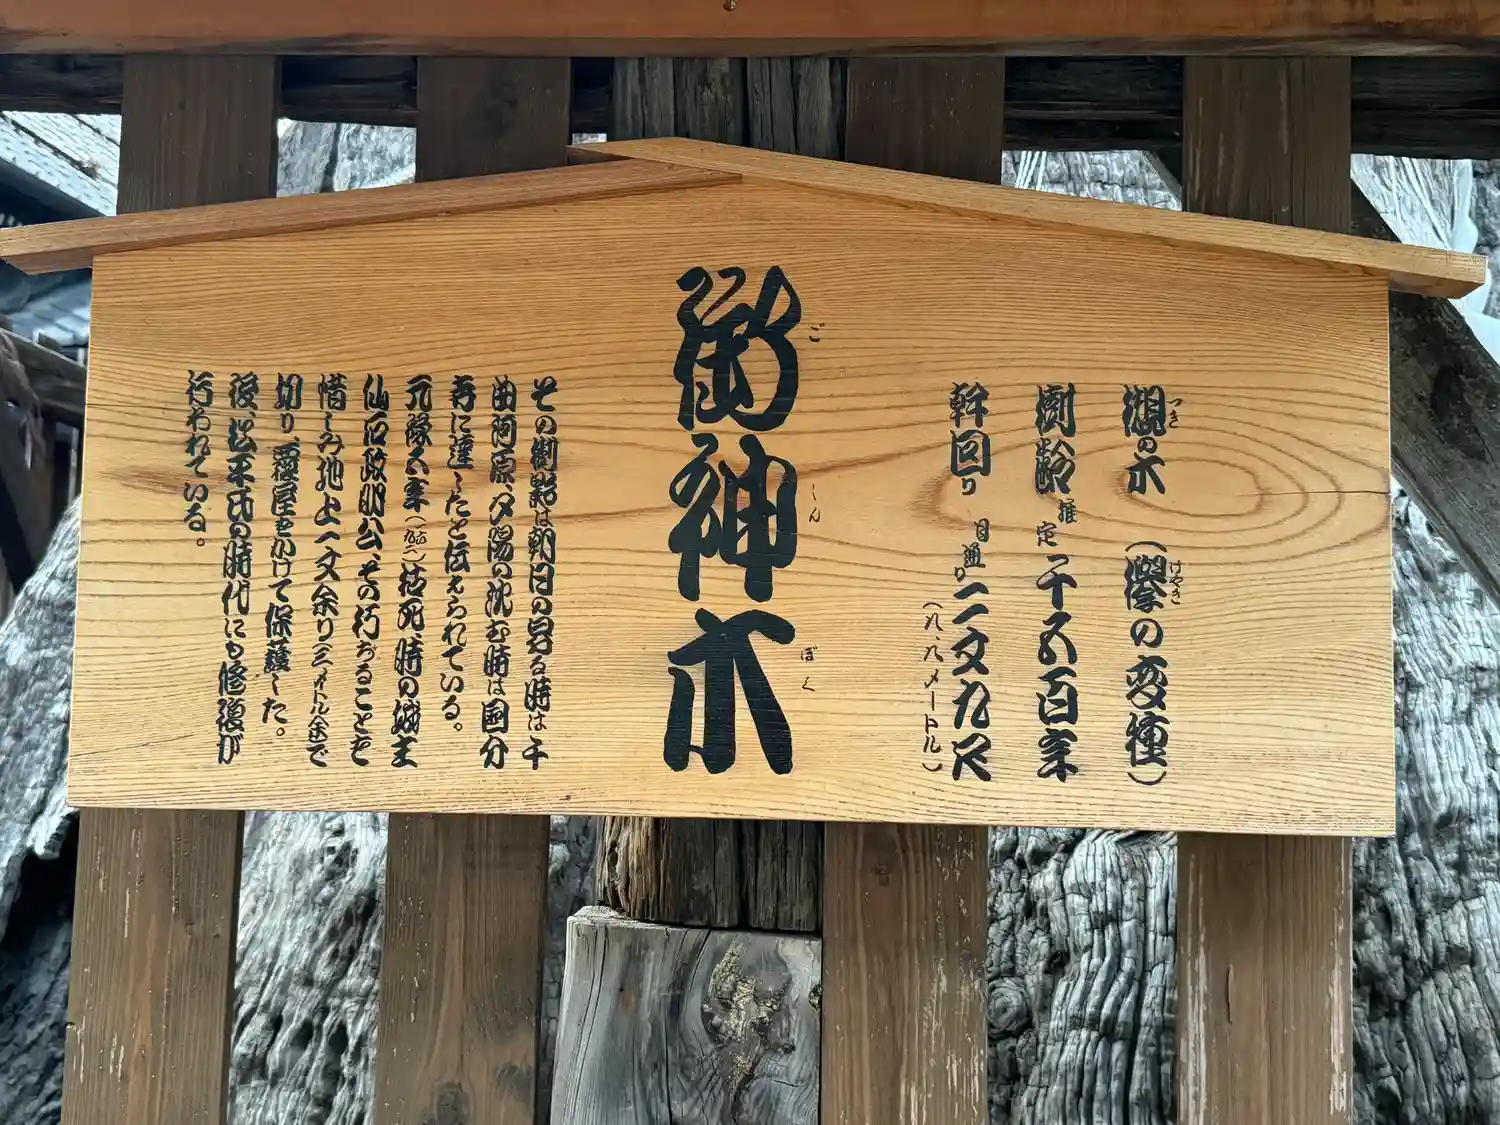 槻の木(欅の変種)
つき
けやき
樹齢 推定 千五百年
幹回り 目通り 二丈九尺
(八.八メートル)
御神木
ごしんぼく
その樹影は朝日の昇る時は千
曲河原、夕陽の沈む時は国分
寺に達したと伝えられている。
元禄五年(一六九二)枯死、時の城主
仙石政明公、その朽ちることを
惜しみ地上一丈余り(三メートル余)で
切り、覆屋をかけて保護した。
後、松平氏の時代にも修復が
行われている。